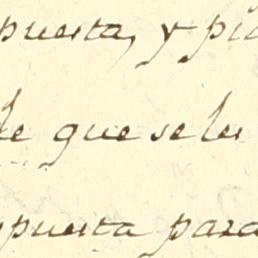 puesta, y pid
de que se les
puesta para